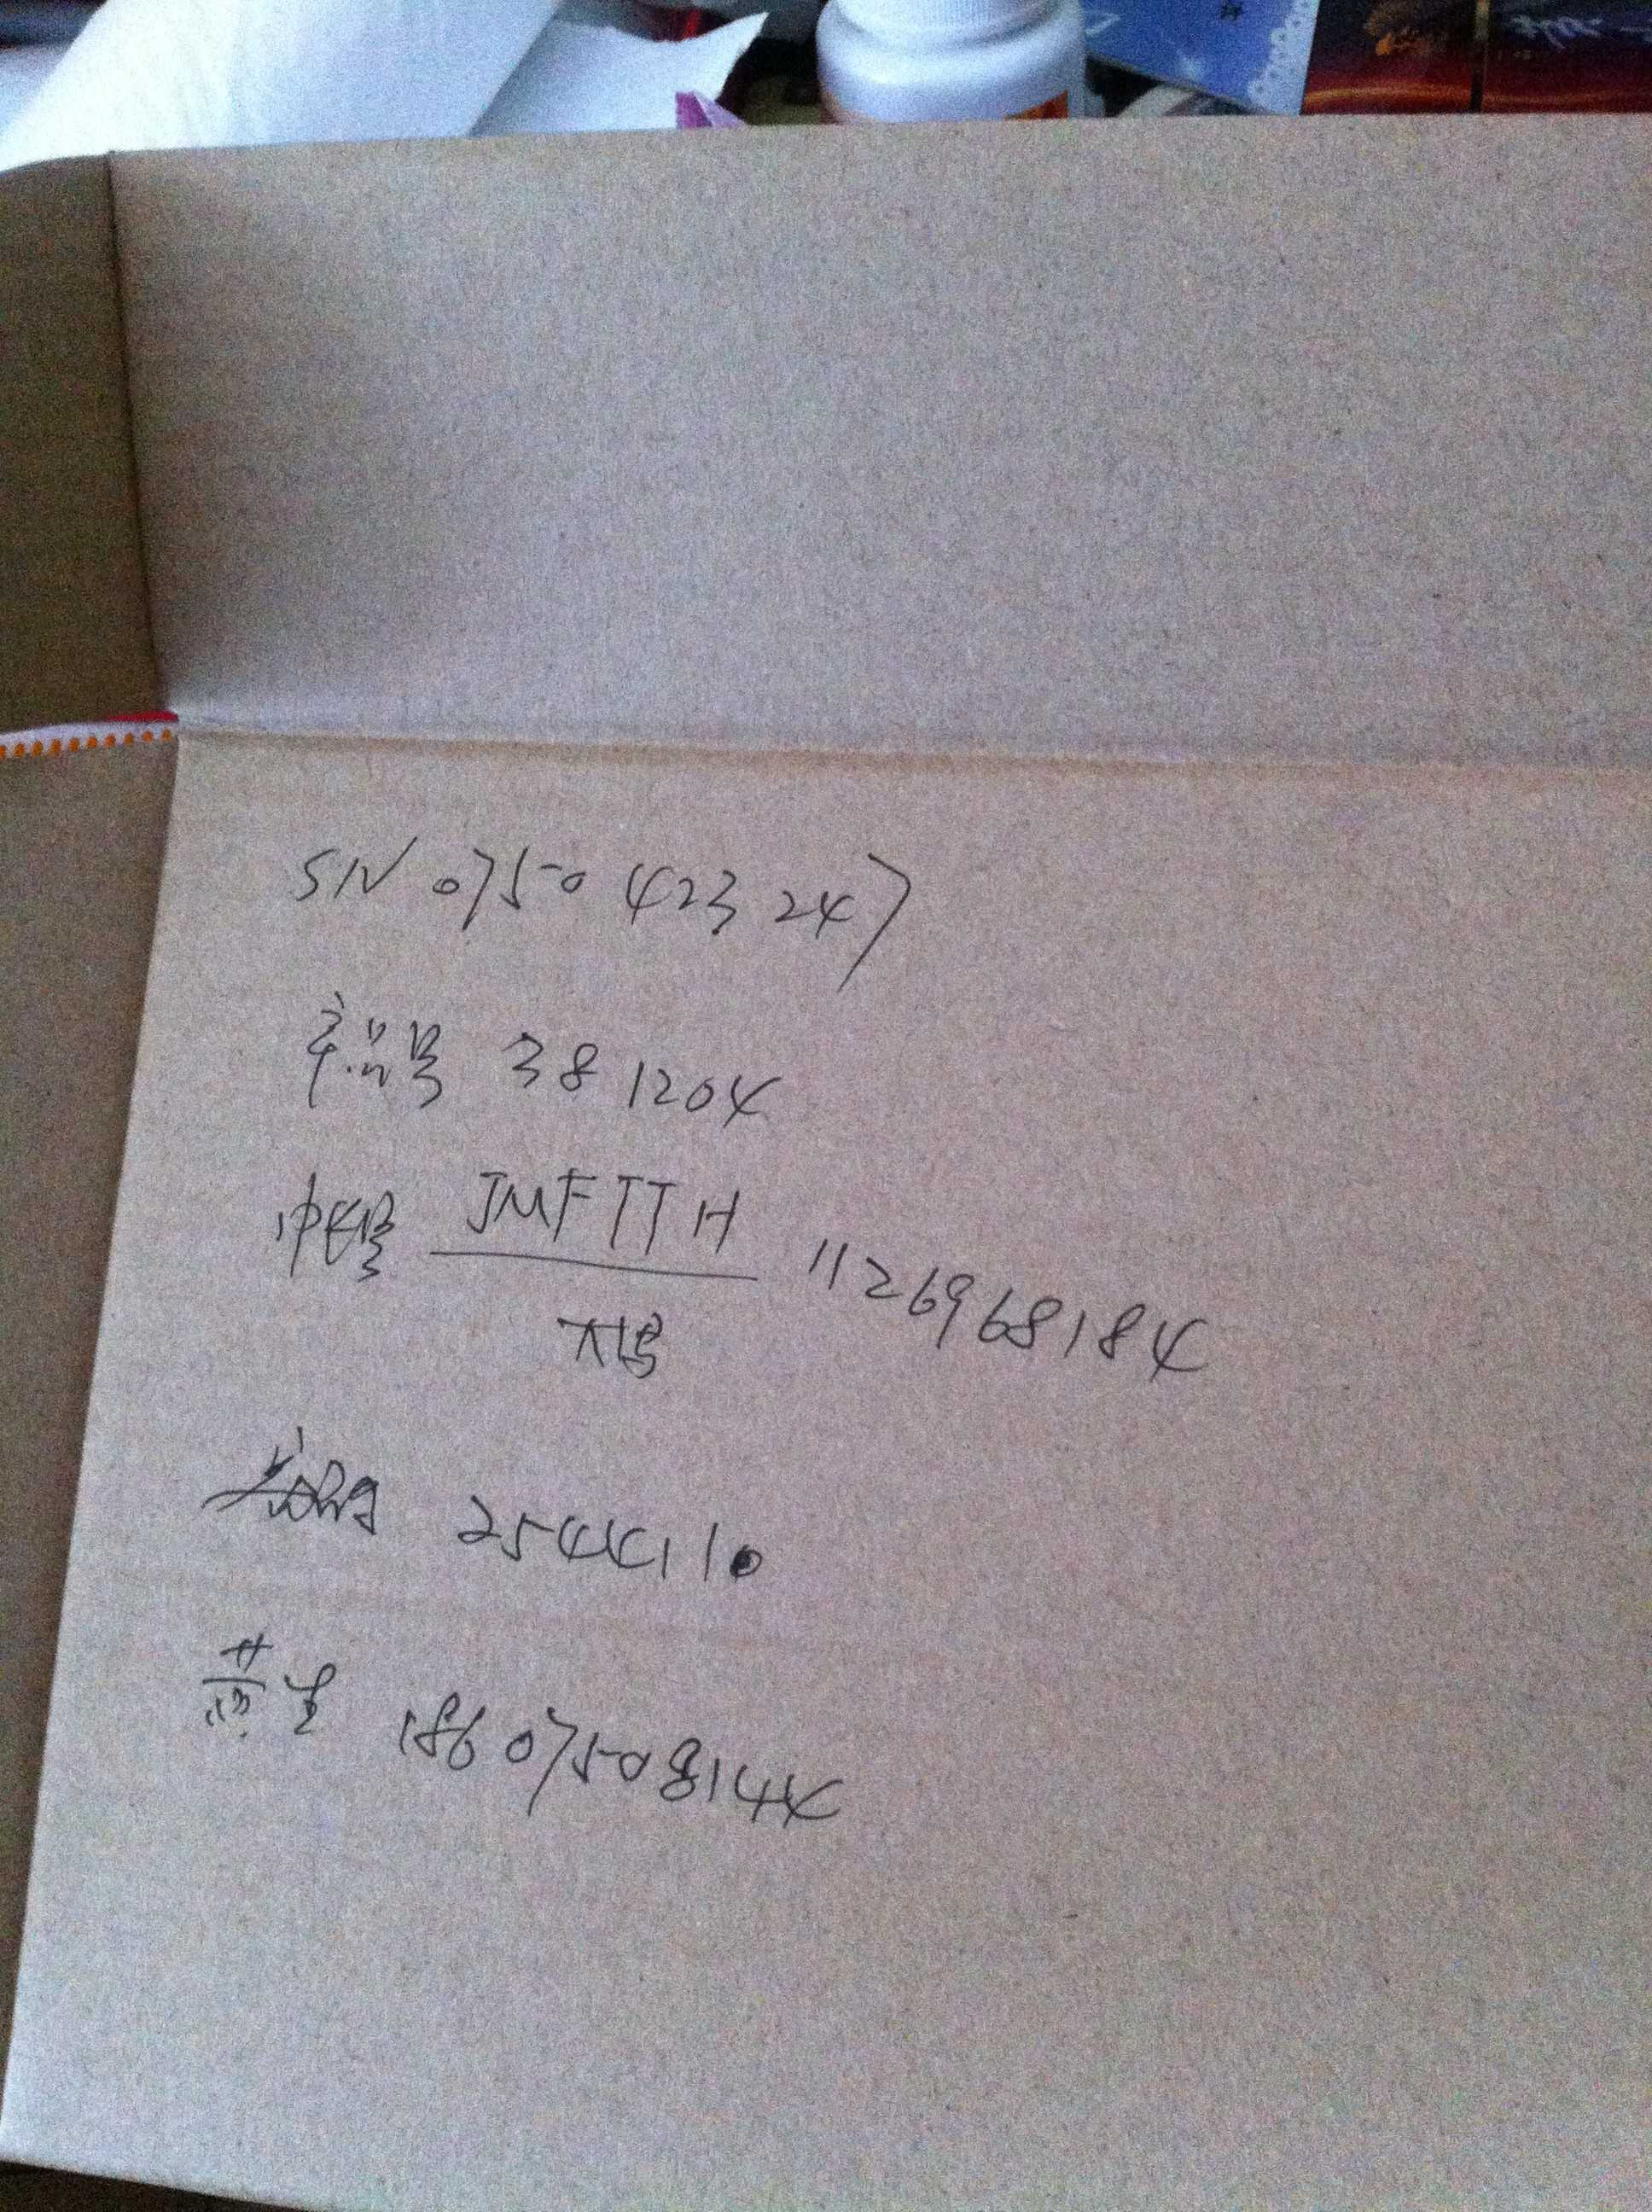 SN 0750 423 247
产品号 381204
冲值号 JMFTTH 1126968184
大写
2544110
黄生 18607508144